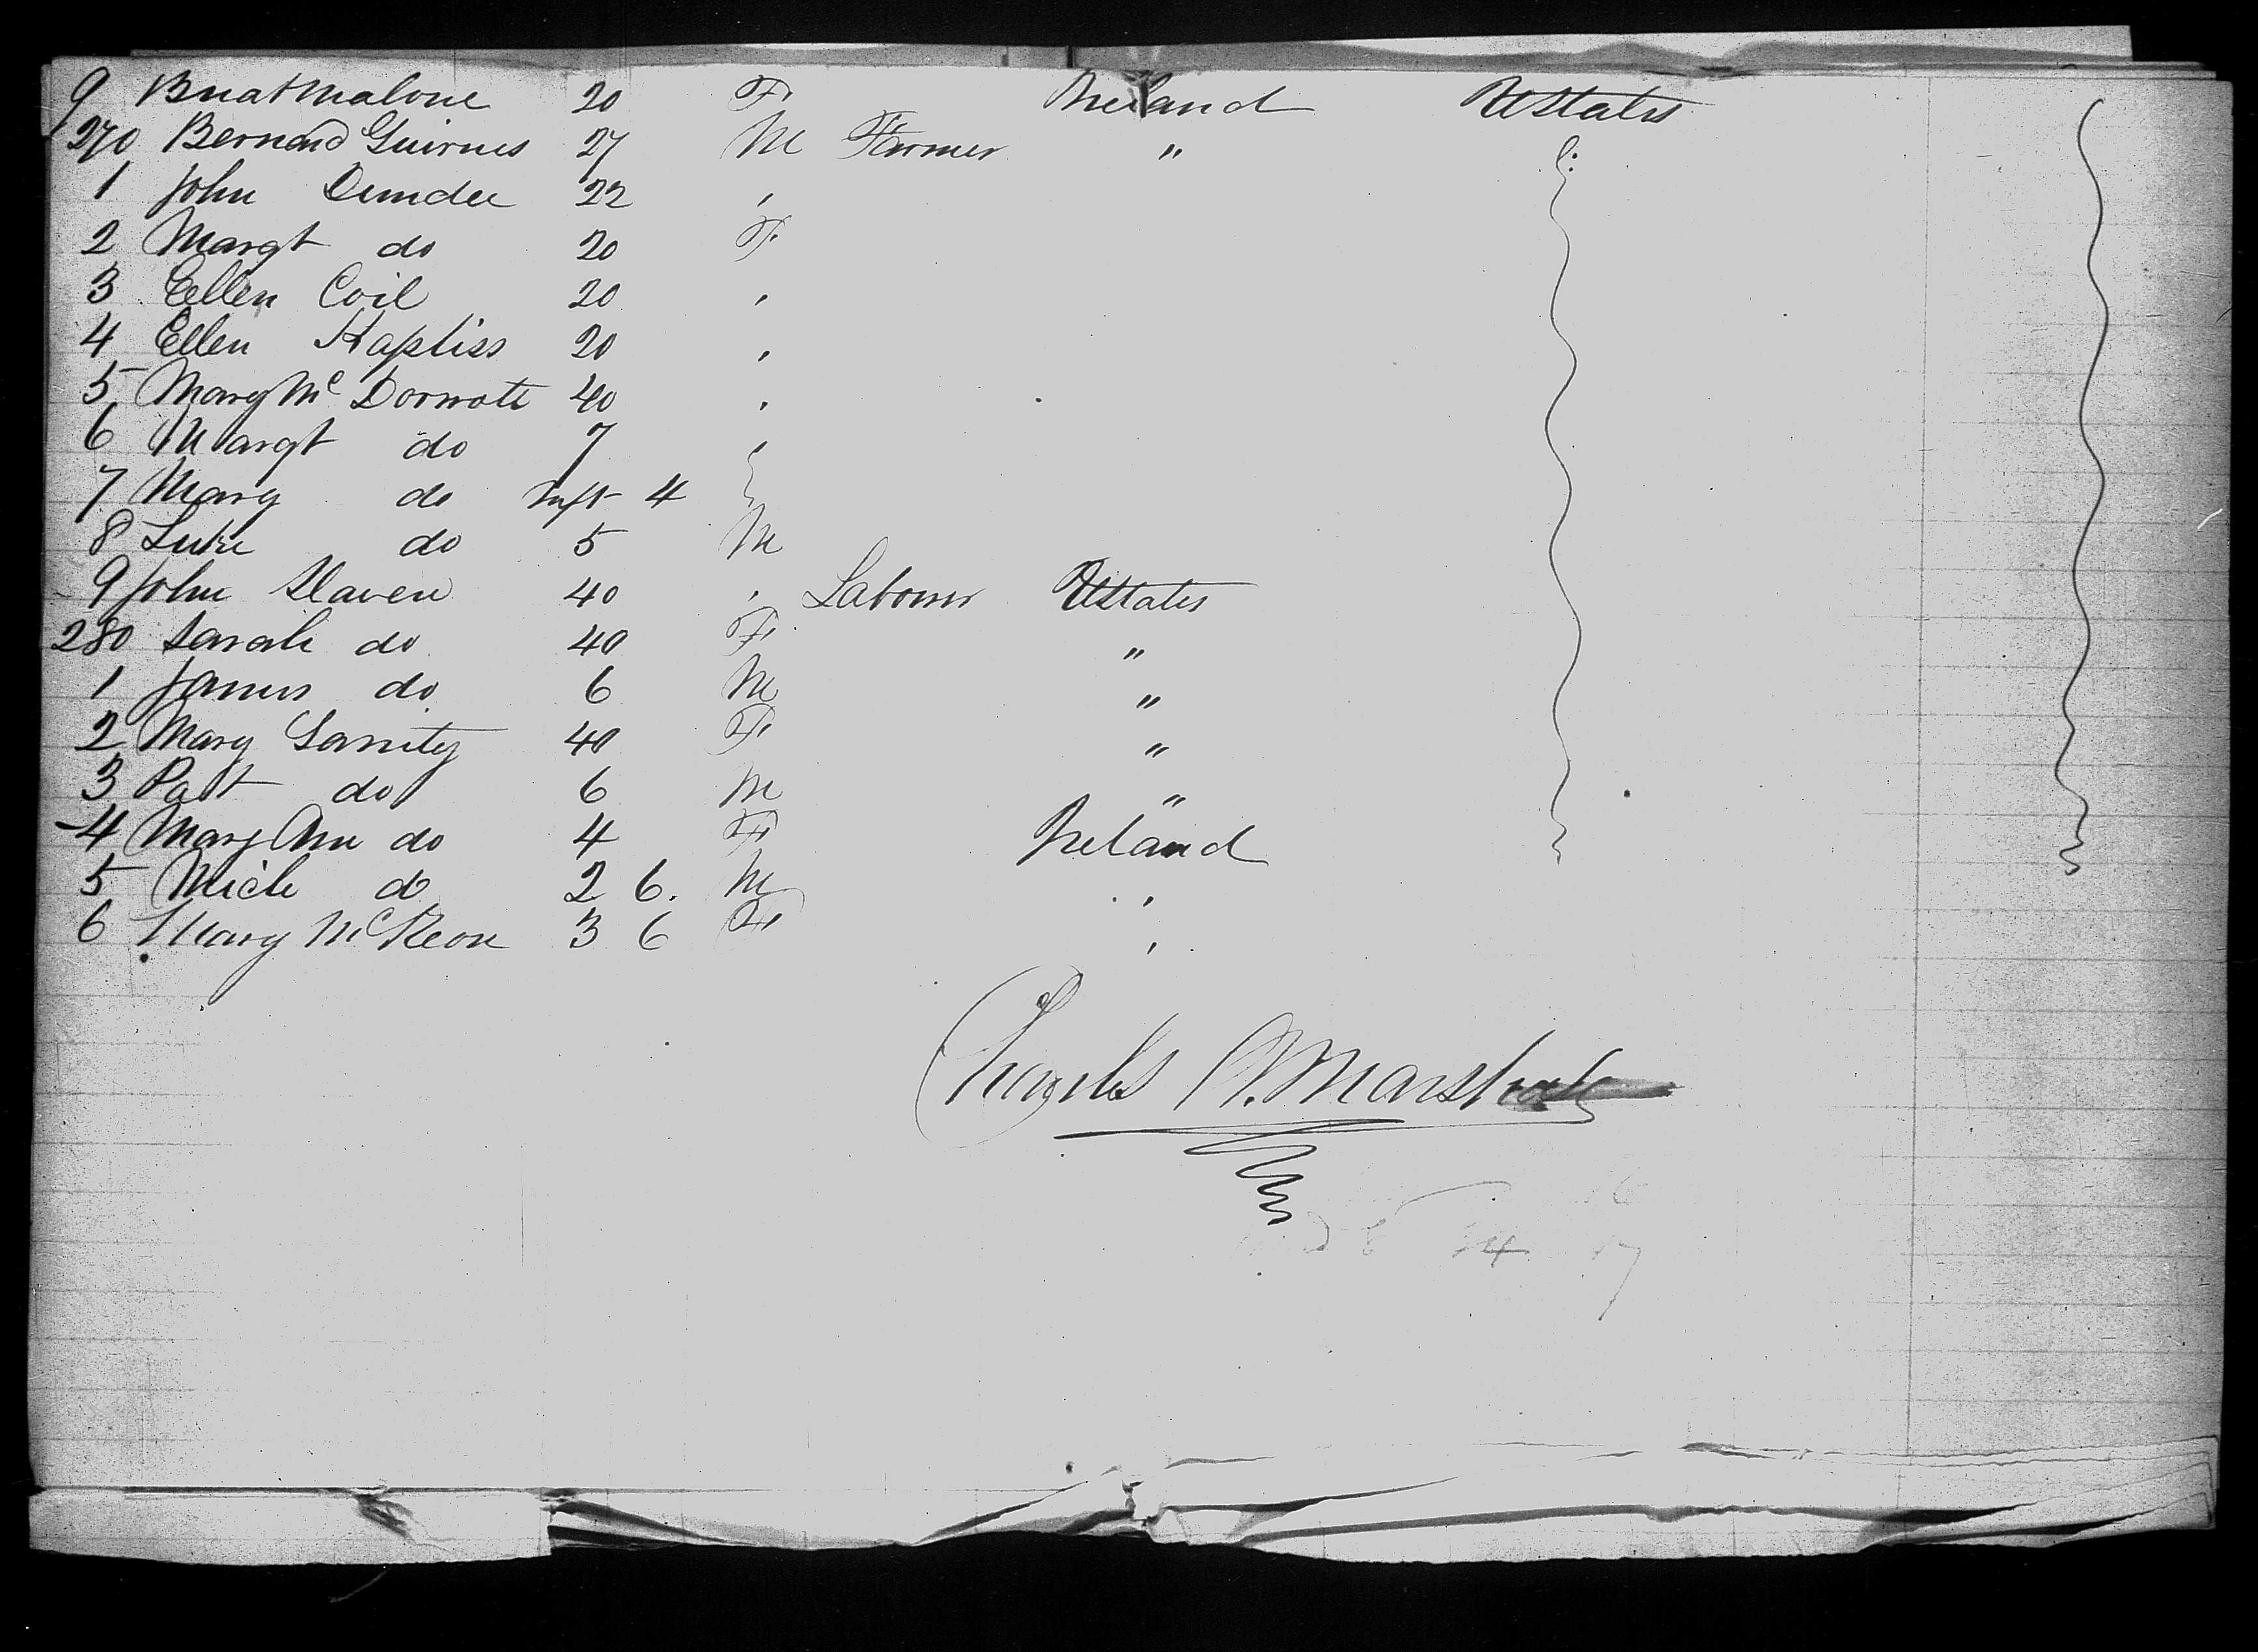 9 Bridt Malone 20 F Ireland UStates
270 Bernard Guirnes 27 M Farmer "
1 John Dundee 22 "
2 Margt do 20 F
3 Ellen Coil 20 "
4 Ellen Hapliss 20 "
5 Mary Mc Dormott 40 "
6 Margt do 7 "
7 Mary do Inft 4
8 Luke do 5 M
9 John Slaven 40 " Labourer UStates
280 Sarah do 40 F "
1 James do 6 M "
2 Mary Garrity 40 F "
3 Pat do 6 M "
4 Mary Ann do 4 F Ireland
5 Mich do 2 6. M "
6 Mary McKeon 3 6 F "
Charles A. Marshall